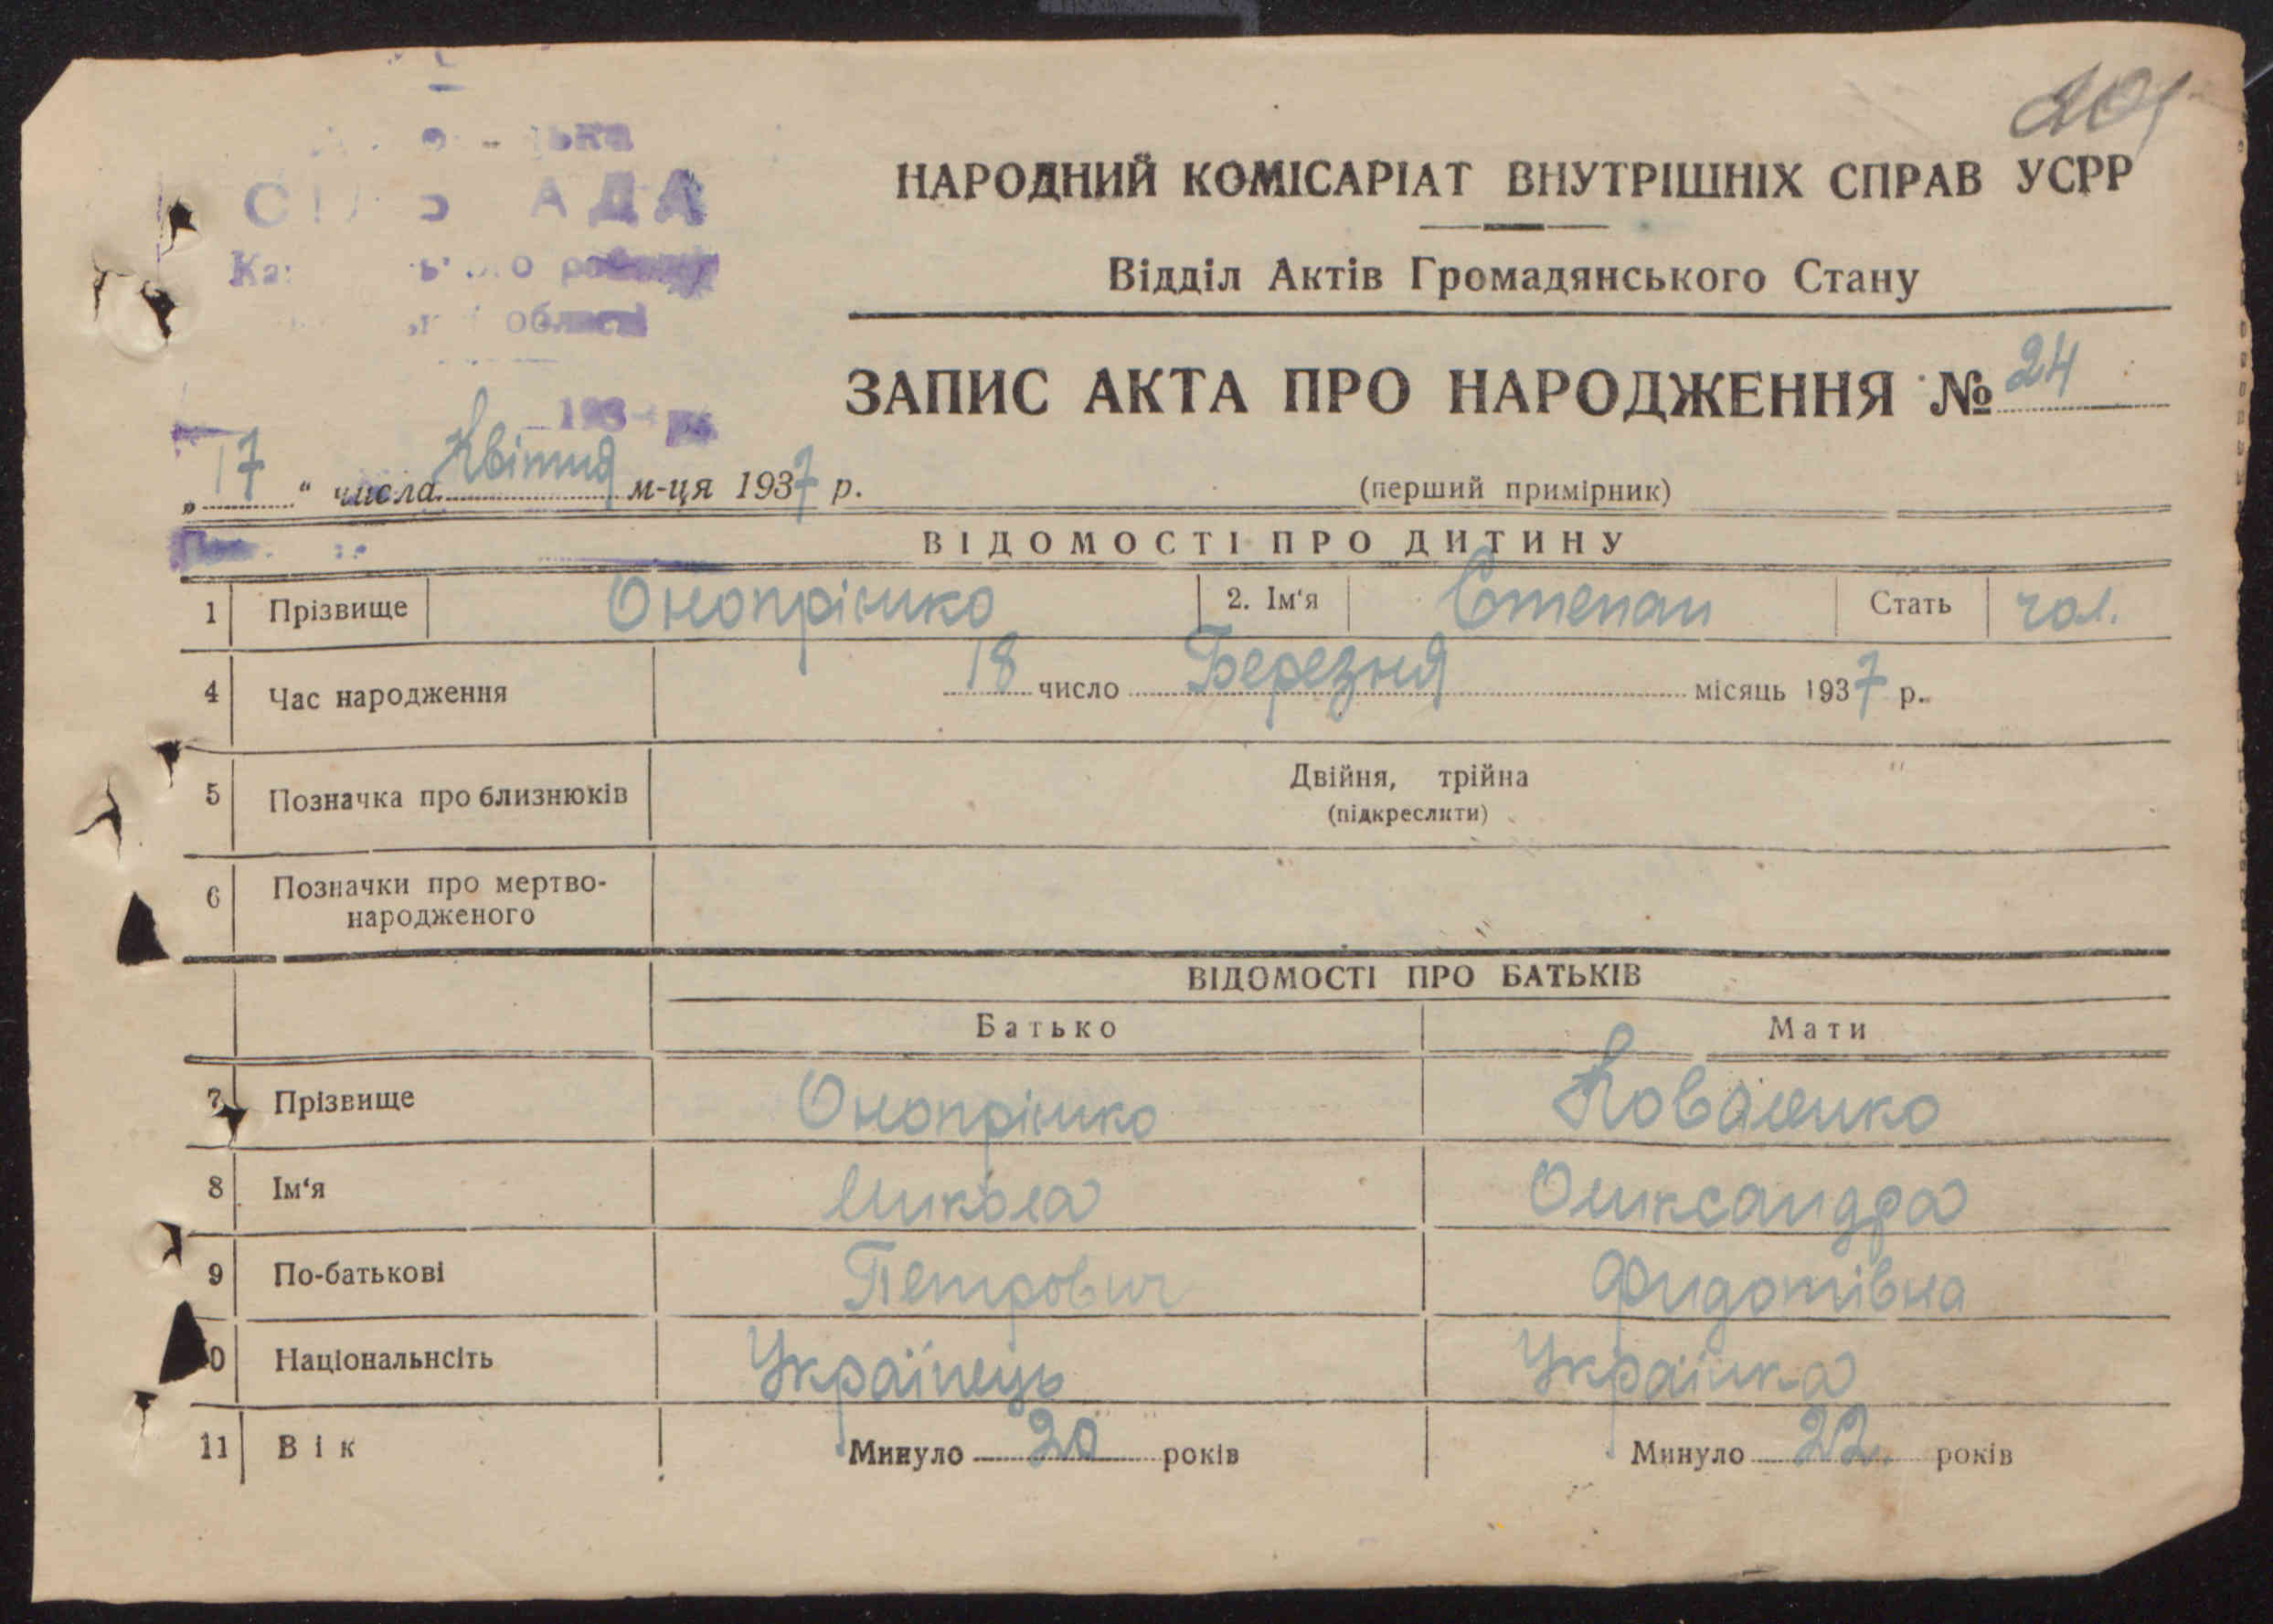 201
НАРОДНИЙ КОМІСАРІАТ ВНУТРІШНІХ СПРАВ УСРР
Відділ Актів Громадянського Стану
АДА
області
193
ЗАПИС АКТА ПРО НАРОДЖЕННЯ № 24
„17“ числа Квітня м-ця 1937 р.
(перший примірник)
ВІДОМОСТІ ПРО ДИТИНУ
1 Прізвище Онопрієнко 2. Ім'я Степан Стать чол.
4 Час народження 18 число Березня місяць 1937 р.
5 Позначка про близнюків Двійня, трійна
(підкреслити)
6 Позначки про мертво-
народженого
ВІДОМОСТІ ПРО БАТЬКІВ
Батько Мати
7 Прізвище Онопрієнко Коваленко
8 Ім'я Микола Олександра
9 По-батькові Петрович Федотівна
10 Національнсіть Українець Українка
11 Вік Минуло 20 років Минуло 22 років